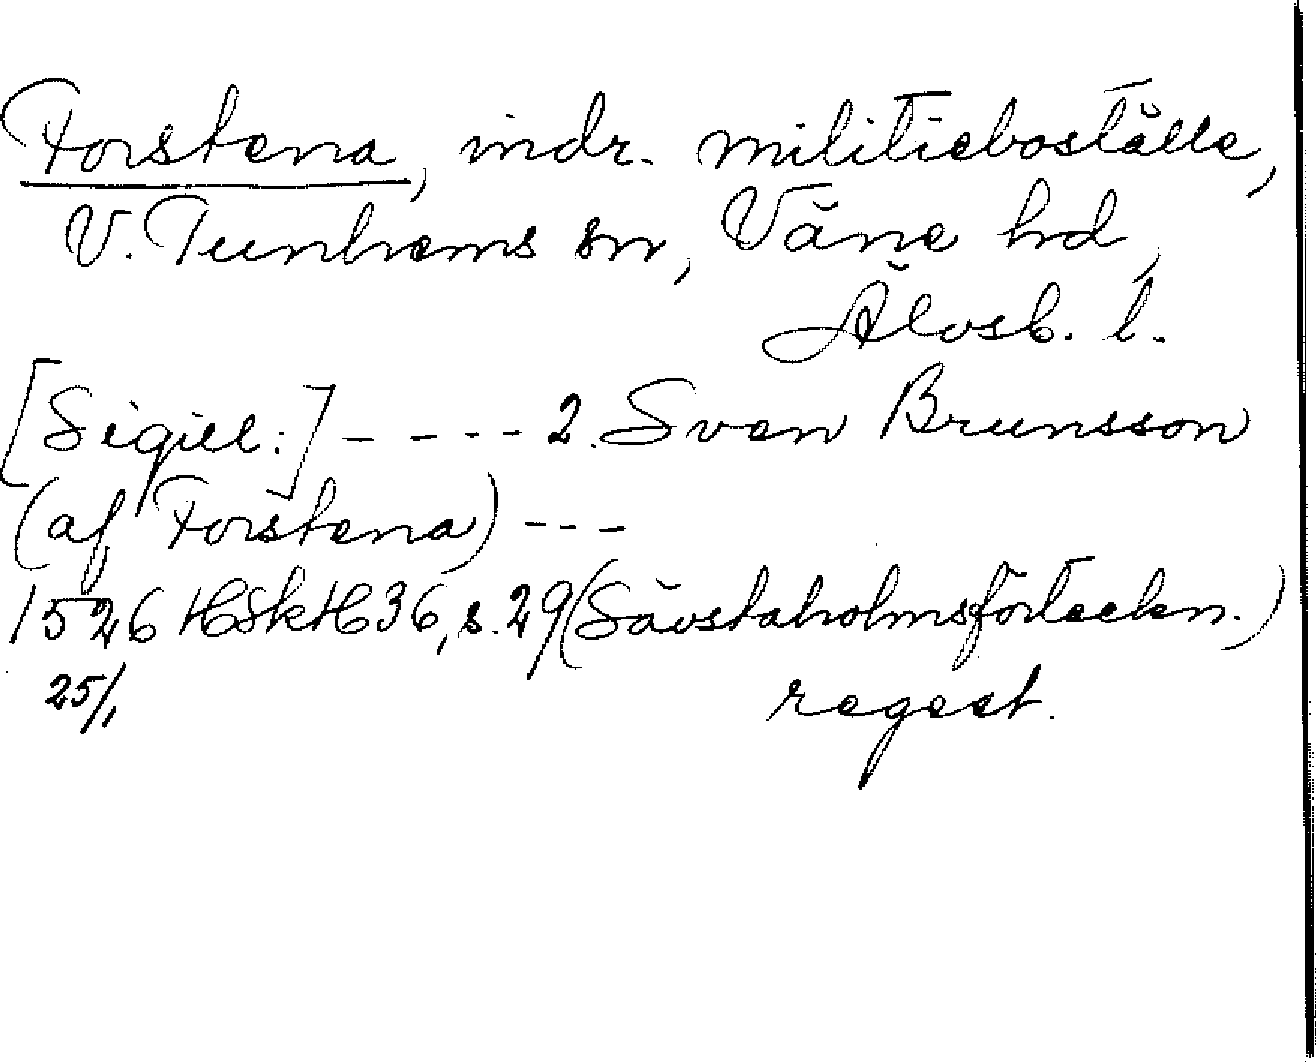 Forstena, indr. militieboställe,
V. Tunhems sn, Väne hd,
Älvsb. l.
[Sigill:] - - - - 2. Sven Brunsson
(af Forstena) - - -
1526 HSkH 36, s. 29 (Sävstaholmsförteckn.)
25/1 regest.